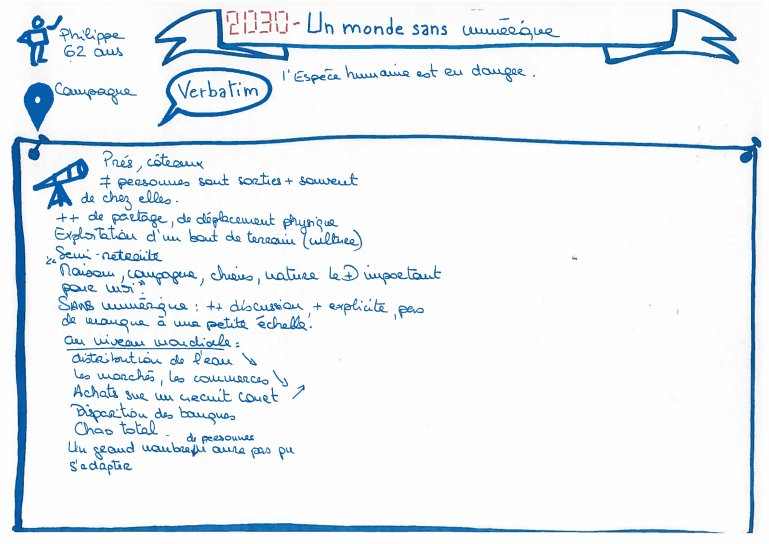 Philippe
62 ans
2030 - Un monde sans numérique
Campagne
Verbatim
l'Espèce humaine est en danger.
Prés, côteaux
≠ personnes sont sorties + souvent
de chez elles.
++ de partage, de déplacement physique
Exploitation d'un bout de terrain (culture)
Semi-retraite
"Maison, campagne, chiens, nature le important
pour moi."
SANS numérique : ++ discussion, + explicite, pas
de manque à une petite échelle.
au niveau mondiale :
distribution de l'eau ↘
Les marchés, les commerces ↘
Achats sur un circuit court ↗
Disparition des banques
Chao total -
Un grand nombre de personnes aura pas pu
s'adapter